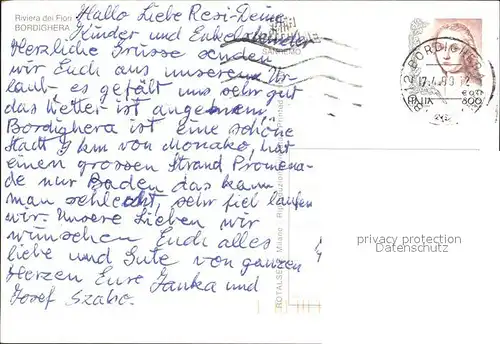 Riviera dei Fiori
BORDIGHERA
Hallo Liebe Resi-Deine
Kinder und Enkelkinder
Herzliche Grüsse senden
wir Euch aus unserem Ur-
laub, es gefält uns sehr gut
das Wetter ist angenem
Bordighera ist eine schöne
Stadt 9 km von Monako, hat
einen grossen Strand Promena-
de nur Baden das kann
man schlecht, sehr fiel laufen
wir. Unsere Lieben wir
wünschen Euch alles
liebe und Gute von ganzen
Herzen Eure Janka und
Josef Szabo.
BORDIGHERA
17.4.99
ITALIA 800
ROTALSELE - Milano
privacy protection watermark
not displayed on original item